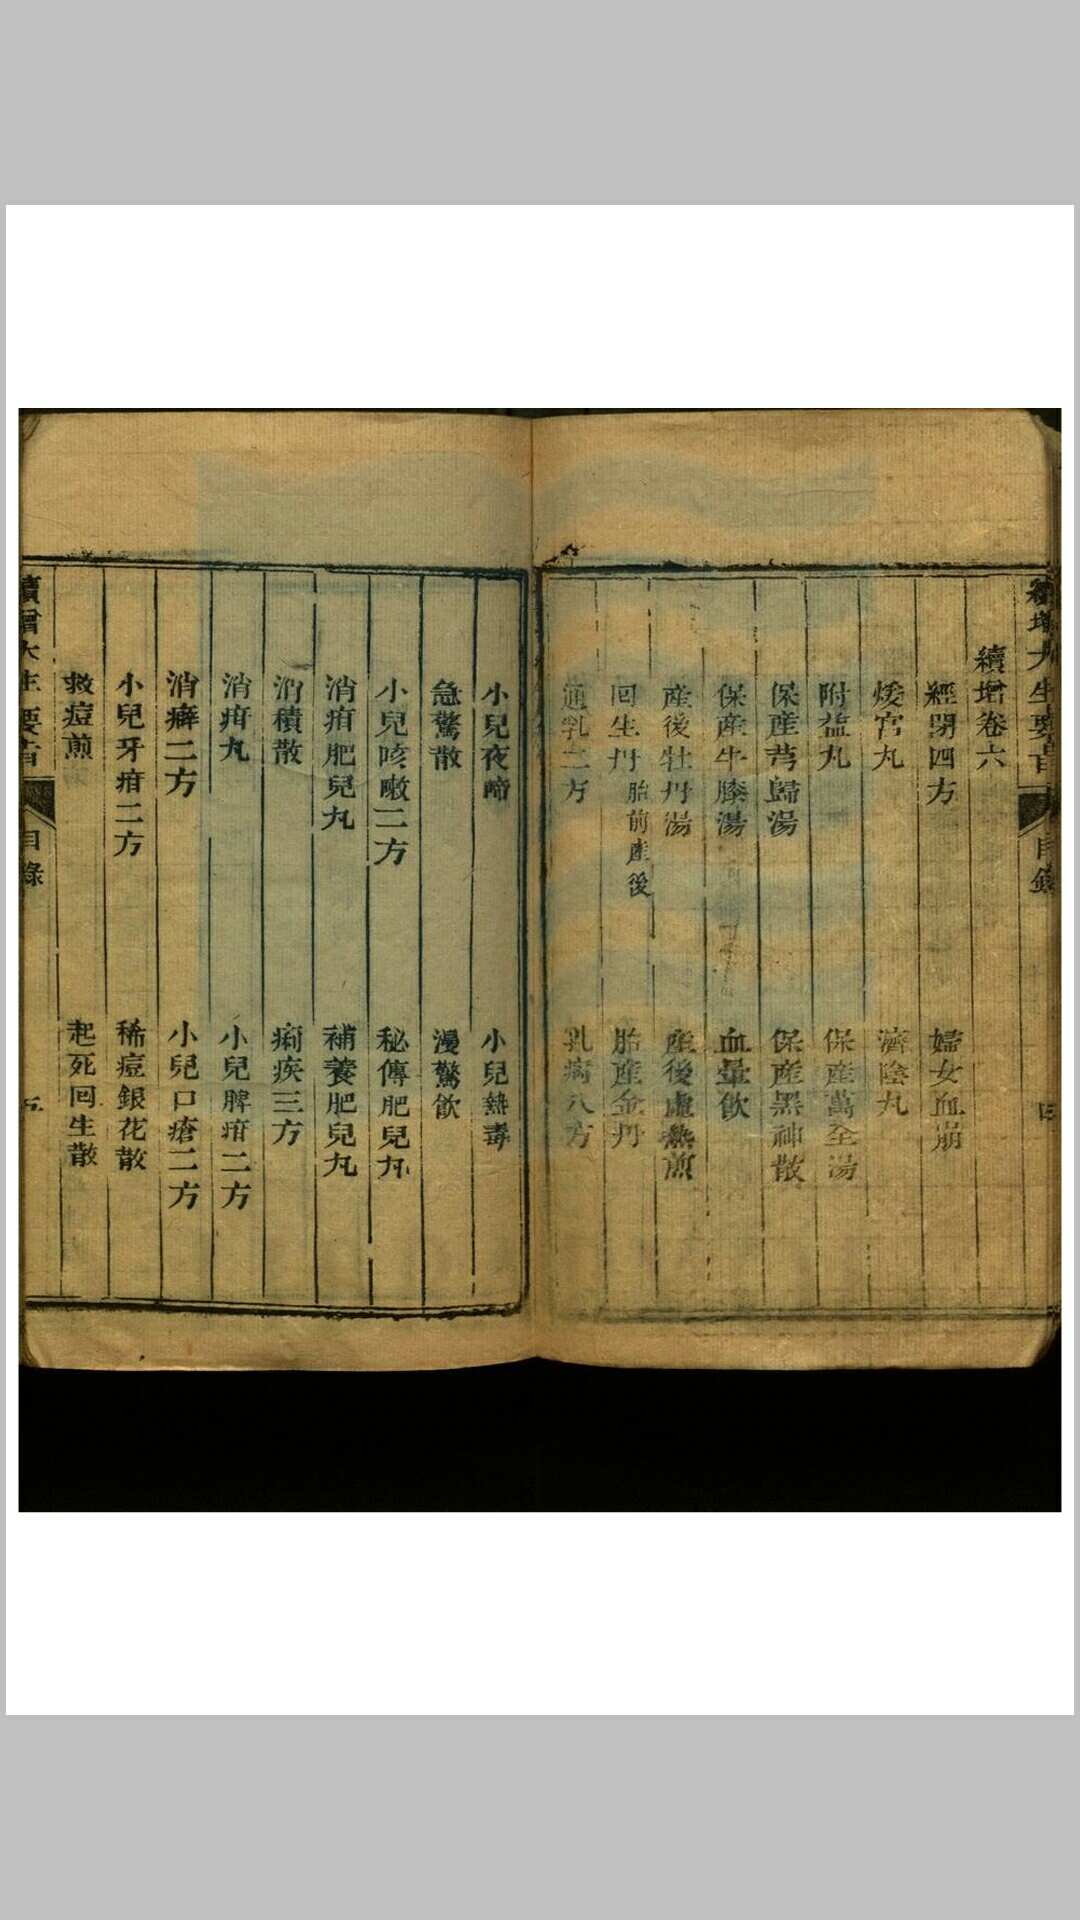 續增大生要旨
目錄
四
續增卷六
經閉四方
婦女血崩
煖宮丸
濟陰丸
附益丸
保產萬全湯
保產芎歸湯
保產黑神散
保產牛膝湯
血暈飲
產後牡丹湯
產後虛熱煎
回生丹 胎前產後
胎產金丹
通乳二方
乳病八方
小兒夜啼
小兒熱毒
急驚散
漫驚飲
小兒咳嗽二方
秘傳肥兒丸
消疳肥兒丸
補養肥兒丸
消積散
痢疾三方
消疳丸
小兒脾疳二方
消癖二方
小兒口瘡二方
小兒牙疳二方
稀痘銀花散
救痘煎
起死回生散
續增大生要旨
目錄
五